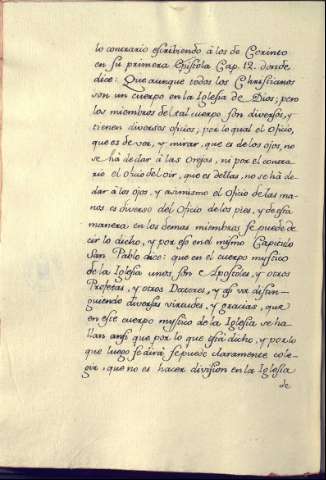 lo contrario escribiendo á los de Corinto
en su primera Epistola Cap. 12. donde
dice: Que aunque todos los Christianos
son un cuerpo en la Iglesia de Dios; pero
los miembros del tal cuerpo son diversos, y
tienen diversos oficios, por lo qual el Oficio,
que es de ver, y mirar, que es de los ojos, no
se há de dar á las Orejas, ni por el contra-
rio el oficio del oir, que es dellas, no se há de
dar á los ojos, y asimismo el Oficio de las ma-
nos es diverso del Oficio de los pies, y desta
manera en los demas miembros se puede de-
cir lo dicho, y por eso en el mismo Capitulo
San Pablo dice: que en el cuerpo mystico
de la Iglesia unos son Apostoles, y otros
Profetas, y otros Doctores, y asi va distin-
guiendo diversas virtudes, y gracias, que
en este cuerpo mystico de la Iglesia se ha-
llan ansi que por lo que está dicho, y por lo
que luego se dirá se puede claramente cole-
gir, que no es hacer division en la Iglesia
de